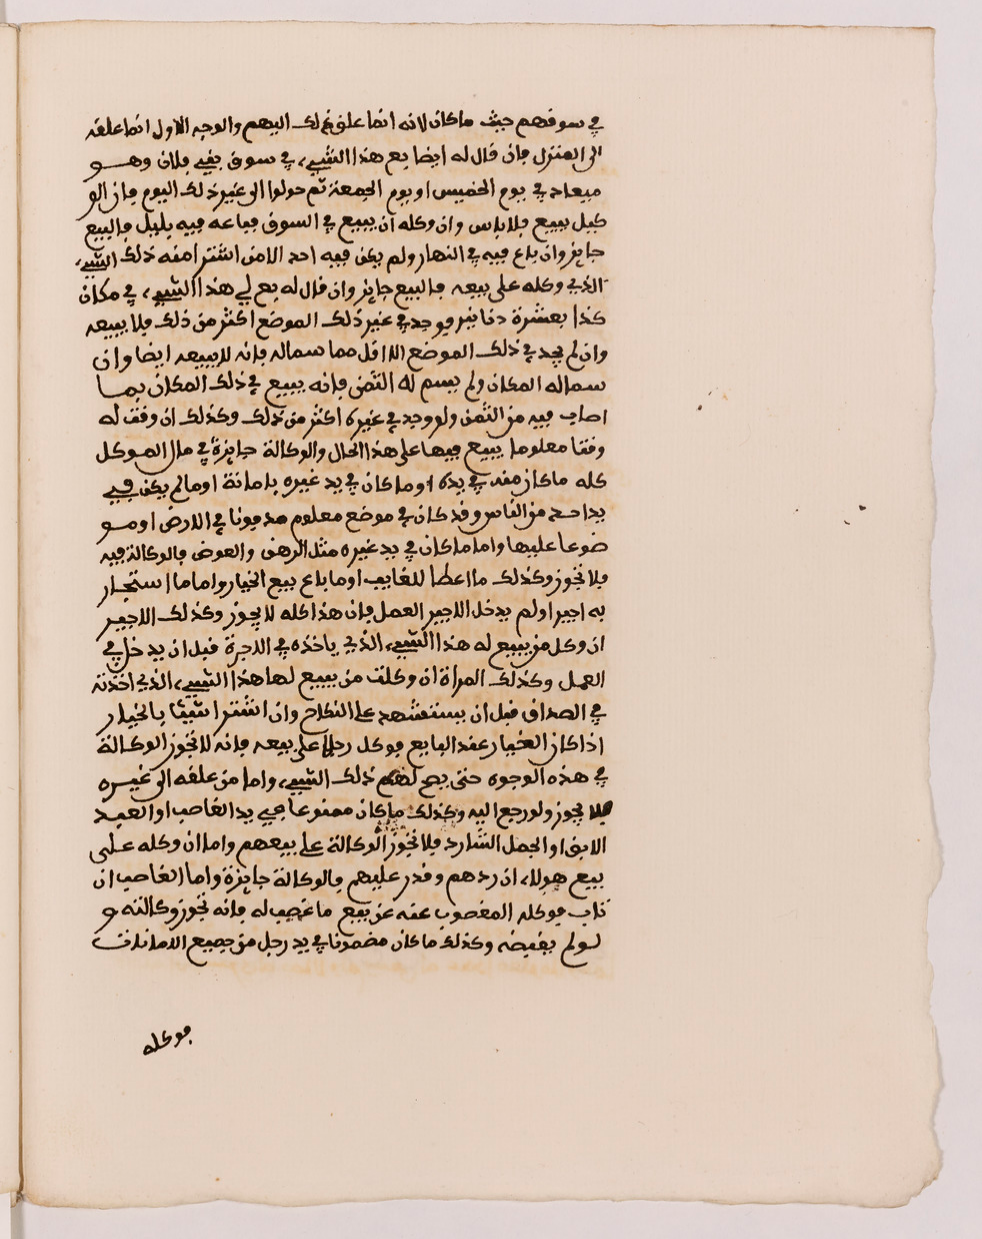 في سوقهم حيث ما كان لانه انما علق ذلك اليهم والوجه الاول انما علقه
الى المنزل فان قال له ايضا بع هذا الشيء في سوق بني فلان وهو
ميعاد في يوم الخميس او يوم الجمعة ثم حولوا الى غير ذلك اليوم فان الو
كيل يبيع فلا باس وان وكله ان يبيع في السوق فباعه فيه بليل فالبيع
جايز وان باع فيه في النهار ولم يكن فيه احد الا من اشترا منه ذلك الشيء
الذي وكله على بيعه فالبيع جايز وان قال له بع لي هذا الشيء في مكان
كذا بعشرة دنانير فوجد في غير ذلك الموضع اكثر من ذلك فلا يبيعه
وان لم يجد في ذلك الموضع الا اقل مما سماله فانه لا يبيعه ايضا وان
سماله المكان ولم يسم له الثمن فانه يبيع في ذلك المكان بما
اصاب فيه من الثمن ولو وجد في غيره اكثر من ذلك وكذلك ان وقت له
وقتا معلوما يبيع فيها على هذا الحال والوكالة جايزة في مال الموكل
كله ما كان منه في يده او ما كان في يد غيره بامانة او مالم يكن في
يد احد من الناس وقد كان في موضع معلوم مدفونا في الارض او مو
ضوعا عليها واما ما كان في يد غيره مثل الرهن والعوض فالوكالة فيه
فلا تجوز وكذلك ما اعطا للغايب او ما باع بيع الخيار واما ما استجار
به اجيرا ولم يدخل الاجير العمل فان هذا كله لا يجوز وكذلك الاجير
ان وكل من يبيع له هذا الشيء الذي ياخذه في الاجرة قبل ان يدخل في
العمل وكذلك المراة ان وكلت من يبيع لها هذا الشيء الذي اخذته
في الصداق قبل ان يستشهد على النكاح وان اشترا شيئا بالخيار
اذا كان الخيار عند البايع فوكل رجلا على بيعه فانه لا تجوز الوكالة
في هذه الوجوه حتى يصح لهم ذلك الشيء واما من علقه الى غيره
فلا يجوز ولو رجع اليه وكذلك ما كان ممنوعا في يد الغاصب او العبد
الابق او الجمل الشارد فلا تجوز الوكالة على بيعهم واما ان وكله على
بيع هولاء ان ردهم وقدر عليهم فالوكالة جايزة واما الغاصب ان
تاب فوكله المغصوب عنه عن بيع ما غصب له فانه تجوز وكالته و
لو لم يقبضه وكذلك ما كان مضمونا في يد رجل من جميع الامانات
فوكله